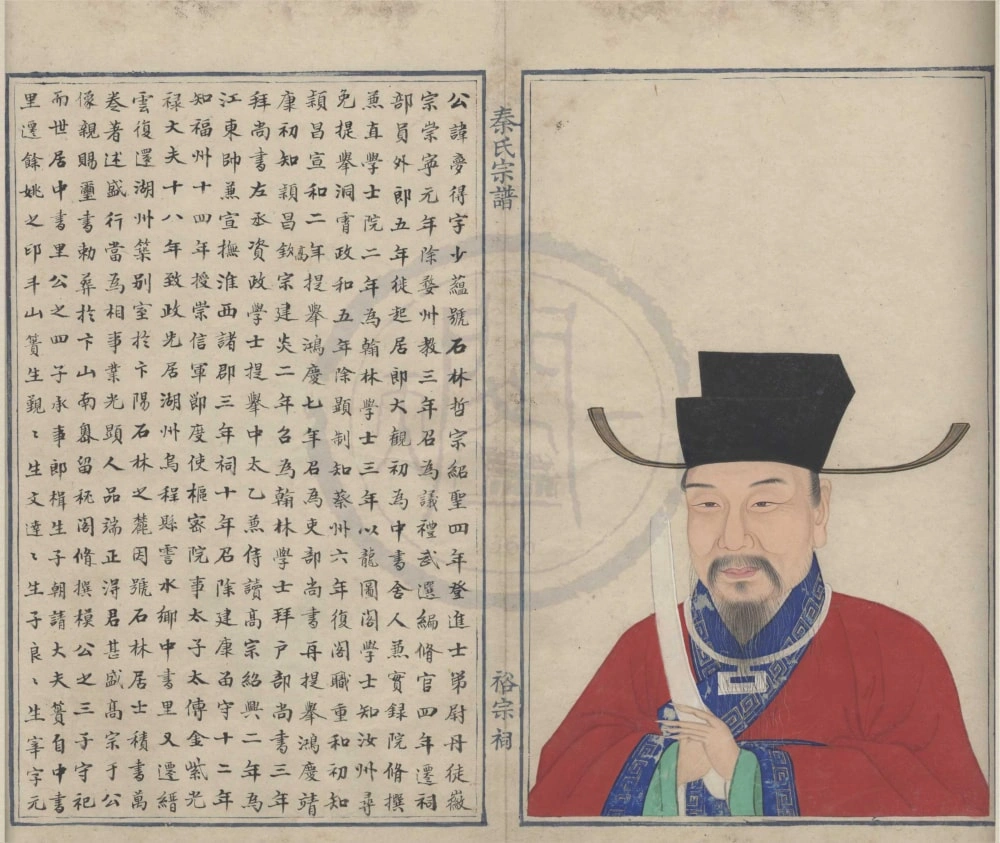 秦氏宗譜
裕宗祠
公諱夢得字少蘊號石林哲宗紹聖四年登進士第尉丹徒徽
宗崇寧元年除婺州教三年召為議禮武選編脩官四年遷祠
部員外郎五年徙起居郎大觀初為中書舍人兼實録院脩撰
兼直學士院二年為翰林學士三年以龍圖閣學士知汝州尋
免提舉洞霄政和五年除顯制知蔡州六年復閣職重和初知
潁昌宣和二年提舉鴻慶七年召為吏部尚書再提舉鴻慶靖
康初知潁昌欽宗高建炎二年召為翰林學士拜戶部尚書三年
拜尚書左丞資政學士提舉中太乙兼侍讀高宗紹興二年為
江東帥兼宣撫淮西諸郡三年祠十年召除建康留守十二年
知福州十四年授崇信軍節度使樞密院事太子太傅金紫光
祿大夫十八年致政先居湖州烏程縣霅水鄉中書里又遷縉
雲復還湖州築別室於卞陽石林之麓因號石林居士積書萬
卷著述盛行當為相事業光顯人品端正得君甚盛高宗于公
像親賜璽書勅葬於卞山南留秘閣脩撰模公之三子守祀
而世居中書里公之四子承事郎楫生子朝請大夫簣自中書
里遷餘姚之印丰山簣生覲〻生文達〻生子良〻生宰字元